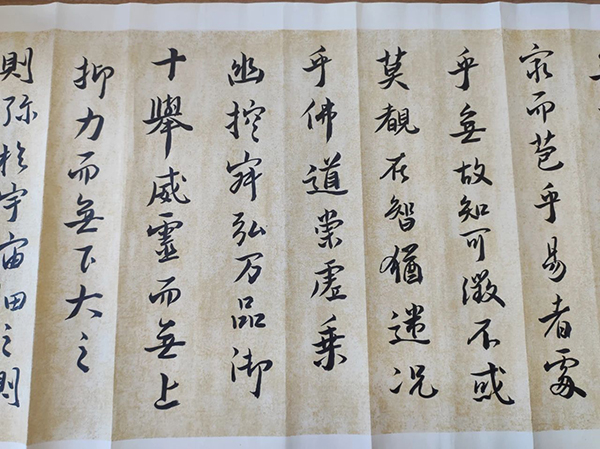 而苞乎易者處
乎無故知可徵不惑
莫覩在智猶迷況
乎佛道崇虛乘
幽控寂弘万品御
十舉威靈而無上
抑力而無下大之
則弥於宇宙細之則